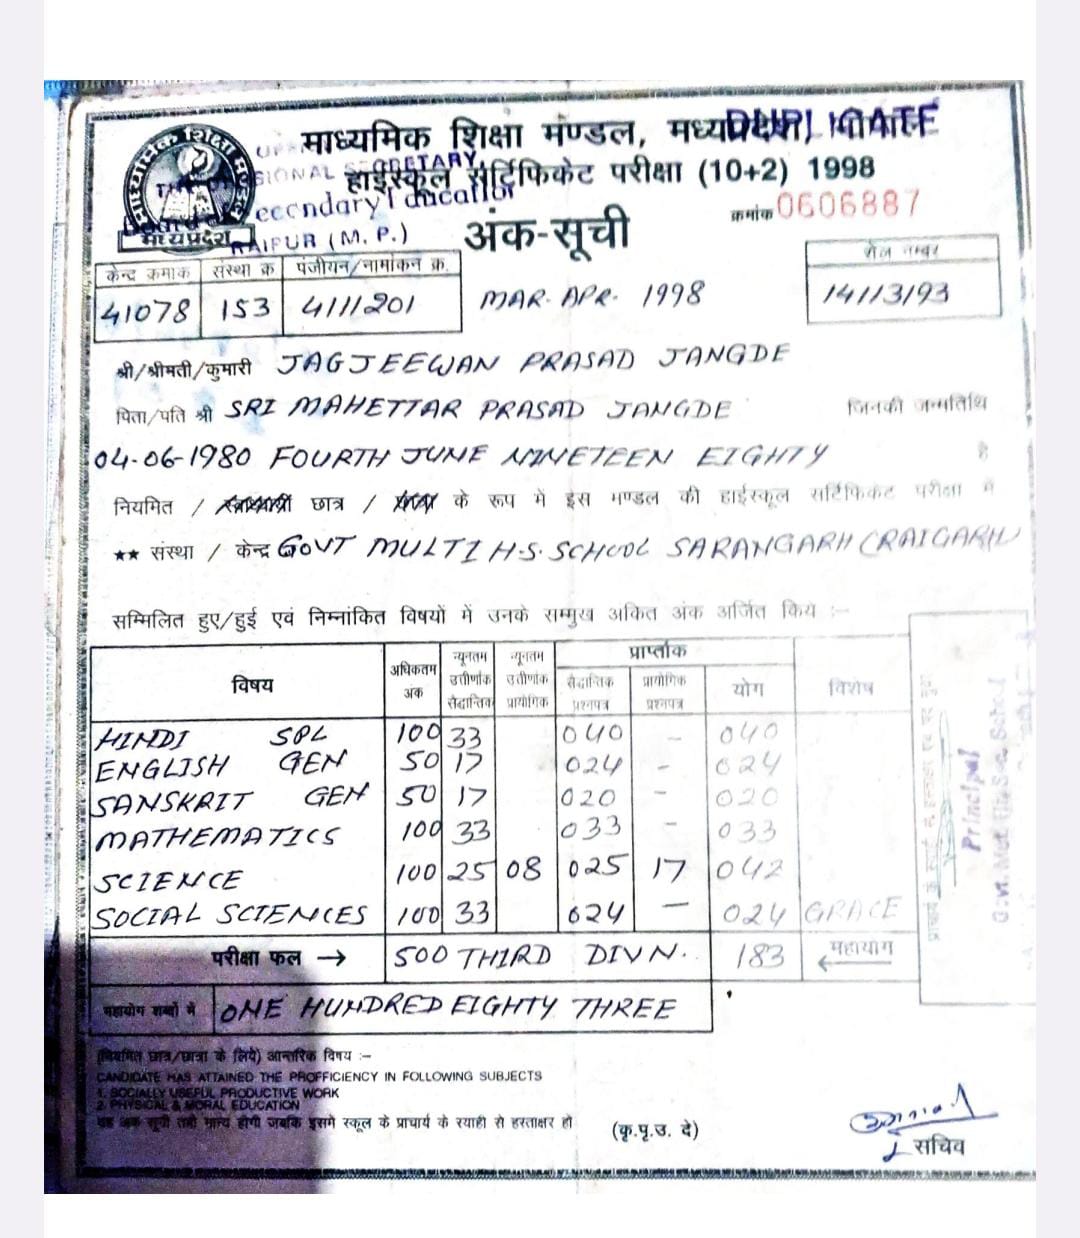 DUPLICATE
माध्यमिक शिक्षा मण्डल,
SIONAL SECRETARY,
हाईस्कूल सर्टिफिकेट परीक्षा (10+2) 1998
Secondary Education
क्रमांक 0606887
RAIPUR (M. P.)
अंक-सूची
मध्यप्रदेश
केन्द्र क्रमांक संस्था क्र पंजीयन/नामांकन क्र. रोल नम्बर
41078 153 4111201 MAR. APR. 1998 14113193
श्री/श्रीमती/कुमारी JAGJEEWAN PRASAD JANGDE
पिता/पति श्री SRI MAHETTAR PRASAD JANGDE जिनकी जन्मतिथि
04-06-1980 FOURTH JUNE NINETEEN EIGHTY है
नियमित / छात्र / के रूप में इस मण्डल की हाईस्कूल सर्टिफिकेट परीक्षा में
★★ संस्था / केन्द्र GOVT MULTI H.S. SCHOOL SARANGARH (RAIGARH
सम्मिलित हुए/हुई एवं निम्नांकित विषयों में उनके सम्मुख अंकित अंक अर्जित किये :-
विषय अधिकतम अंक न्यूनतम उत्तीर्णांक सैद्धान्तिक न्यूनतम उत्तीर्णांक प्रायोगिक प्राप्तांक
सैद्धान्तिक प्रश्नपत्र प्रायोगिक प्रश्नपत्र योग विशेष
HINDI SPL 100 33 040 - 040
ENGLISH GEN 50 17 024 - 024
SANSKRIT GEN 50 17 020 - 020
MATHEMATICS 100 33 033 - 033
SCIENCE 100 25 08 025 17 042
SOCIAL SCIENCES 100 33 024 - 024 GRACE
परीक्षा फल → 500 THIRD DIVN. 183 महायोग
महायोग शब्दों में ONE HUNDRED EIGHTY THREE
Principal
(नियमित छात्र/छात्रा के लिये) आन्तरिक विषय :-
CANDIDATE HAS ATTAINED THE PROFFICIENCY IN FOLLOWING SUBJECTS
1. SOCIALLY USEFUL PRODUCTIVE WORK
2. PHYSICAL & MORAL EDUCATION
यह अंक सूची तभी मान्य होगी जबकि इसमे स्कूल के प्राचार्य के स्याही से हस्ताक्षर हो (कृ.पृ.उ. दे)
सचिव